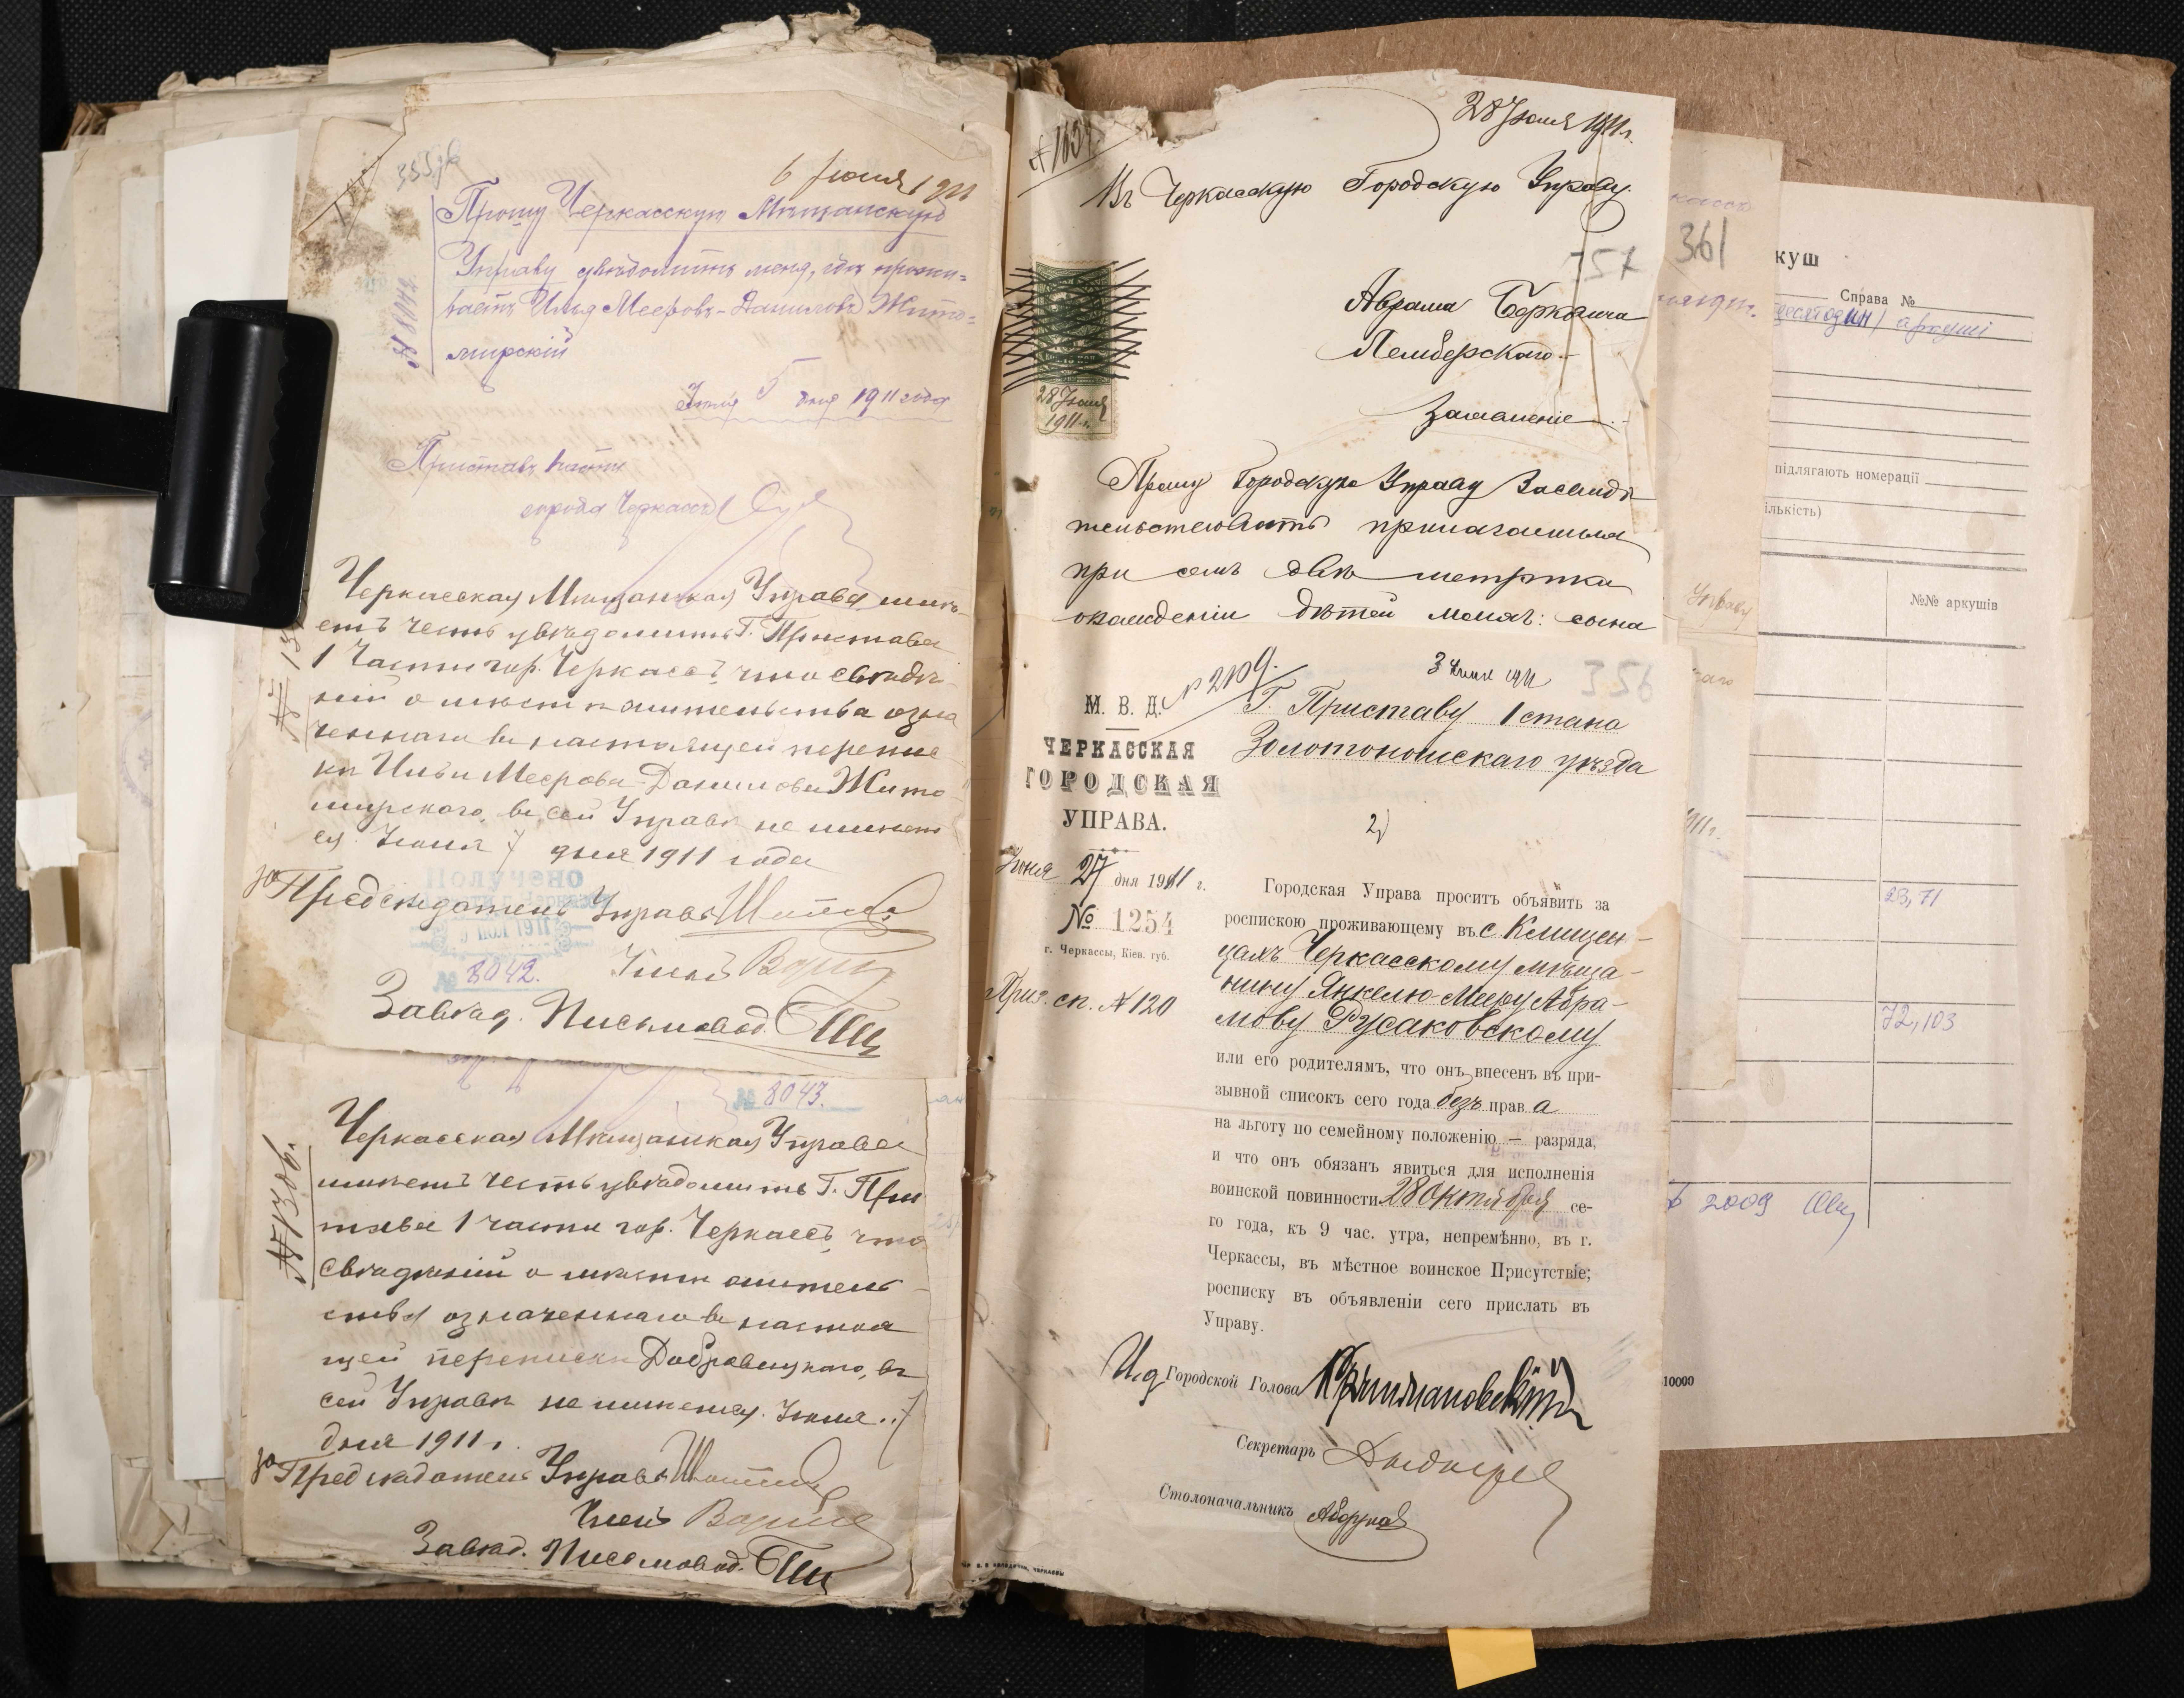 355
6 Іюля 1911
Прошу Черкасскую Мѣщанскую
Управу увѣдомить меня, гдѣ прожи-
ваетъ Илья Мееровъ-Даниловъ Жито-
мирскій
№ 8042
Іюля 5 дня 1911 года
Приставъ 1 части
города Черкассъ
Черкасская Мѣщанская Управа имѣ-
етъ честь увѣдомить Г. Пристава
1 части гор. Черкассъ, что свѣдѣ-
ній о мѣстѣ жительства озна
ченнаго въ настоящей перепис
кѣ Ильи Меерова-Данилова Жито-
мирскаго, въ сей Управѣ не имѣет
ся. Іюля 7 дня 1911 года
за Предсѣдатель Управы
Получено
1911
№ 8042.
Членъ
Завѣд. Письмовод.
№ 8043.
Черкасская Мѣщанская Управа
№ 1306.
имѣетъ честь увѣдомить Г. При
става 1 части гор. Черкассъ, что
свѣдѣній о мѣстѣ житель
ства означеннаго въ настоя
щей перепискѣ Добровицкаго, въ
сей Управѣ не имѣется. Іюля 7
дня 1911 г.
за Предсѣдатель Управы
Членъ
Завѣд. Письмовод.
28 Іюля 1911 г.
Въ Черкасскую Городскую Управу.
357
Аврама Берковича
Лемберскаго
Заявленіе
28 Іюля
1911 г.
Прошу Городскую Управу Засвидѣ
тельствовать прилагаемыя
при семъ двѣ метрики
о рожденіи дѣтей моихъ: сына
№ 2109.
3 Іюля 1911
356
М. В. Д.
ЧЕРКАССКАЯ
ГОРОДСКАЯ
УПРАВА.
Іюня 27 дня 1911 г.
№ 1254
г. Черкассы, Кіев. губ.
Приз. сп. № 120
Г. Приставу 1 стана
Золотоношскаго уѣзда
2)
Городская Управа проситъ объявить за
роспискою проживающему въ с. Клищен-
цахъ Черкасскому мѣща-
нину Янкелю-Мееру Абра-
мову Русаковскому
или его родителямъ, что онъ внесенъ въ при-
зывной списокъ сего года безъ права
на льготу по семейному положенію — разряда,
и что онъ обязанъ явиться для исполненія
воинской повинности 28 октября се-
го года, къ 9 час. утра, непремѣнно, въ г.
Черкассы, въ мѣстное воинское Присутствіе;
росписку въ объявленіи сего прислать въ
Управу.
И.д. Городской Голова
Секретарь
Столоначальникъ
10000
361
Управу
1911 г.
куш
Справа №
десят один) аркуші
підлягають номерації
ількість)
№№ аркушів
23, 71
72, 103
2009